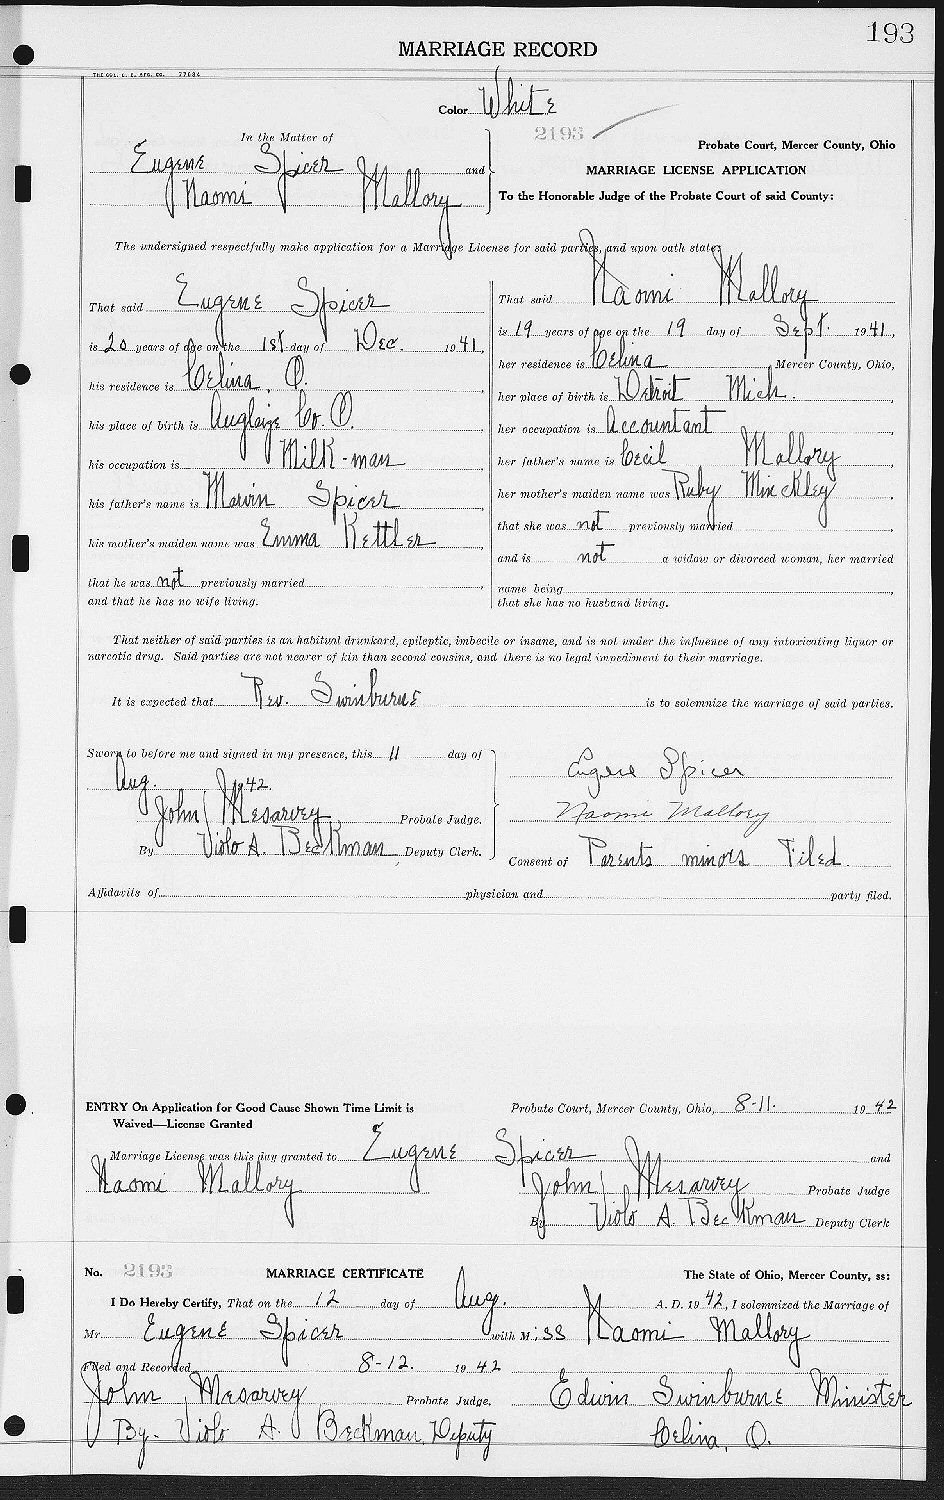 193
MARRIAGE RECORD
THE COL. B. B. MFG. CO. 77684
Color White
In the Matter of
Eugene Spicer and
Naomi Mallory
2193
Probate Court, Mercer County, Ohio
MARRIAGE LICENSE APPLICATION
To the Honorable Judge of the Probate Court of said County:
The undersigned respectfully make application for a Marriage License for said parties, and upon oath state:
That said Eugene Spicer
is 20 years of age on the 1st day of Dec. 1941,
his residence is Celina, O.
his place of birth is Auglaize Co. O.
his occupation is Milk-man
his father's name is Marvin Spicer
his mother's maiden name was Emma Kettler
that he was not previously married
and that he has no wife living.
That said Naomi Mallory
is 19 years of age on the 19 day of Sept. 1941,
her residence is Celina Mercer County, Ohio,
her place of birth is Detroit Mich.
her occupation is Accountant
her father's name is Cecil Mallory
her mother's maiden name was Ruby Minckley
that she was not previously married
and is not a widow or divorced woman, her married
name being
that she has no husband living.
That neither of said parties is an habitual drunkard, epileptic, imbecile or insane, and is not under the influence of any intoxicating liquor or
narcotic drug. Said parties are not nearer of kin than second cousins, and there is no legal impediment to their marriage.
It is expected that Rev. Swinburne is to solemnize the marriage of said parties.
Sworn to before me and signed in my presence, this 11 day of
Aug. 1942.
John Mesarvey, Probate Judge.
By Viola A. Beckman, Deputy Clerk.
Eugene Spicer
Naomi Mallory
Consent of Parents minors Filed.
Affidavits of physician and party filed.
ENTRY On Application for Good Cause Shown Time Limit is
Waived—License Granted
Probate Court, Mercer County, Ohio, 8-11. 1942
Marriage License was this day granted to Eugene Spicer and
Naomi Mallory
John Mesarvey Probate Judge
By Viola A. Beckman Deputy Clerk
No. 2193 MARRIAGE CERTIFICATE The State of Ohio, Mercer County, ss:
I Do Hereby Certify, That on the 12 day of Aug. A. D. 1942, I solemnized the Marriage of
Mr. Eugene Spicer with Miss Naomi Mallory
Filed and Recorded 8-12. 1942
John Mesarvey Probate Judge.
By- Viola A. Beckman, Deputy
Edwin Swinburne Minister
Celina, O.